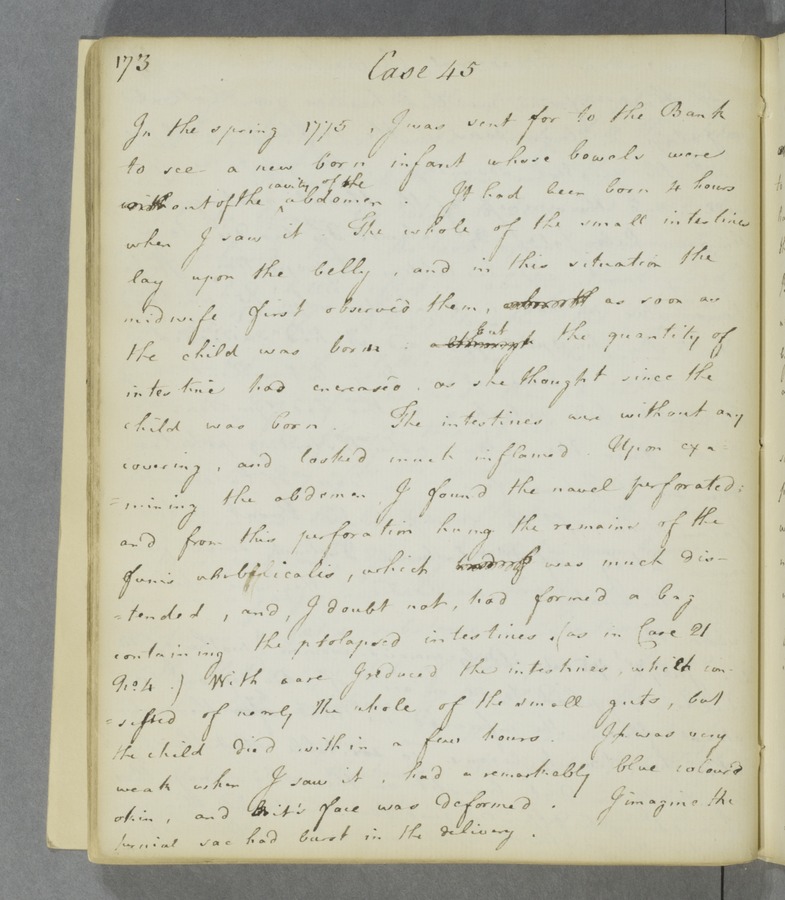 173 Case 45
In the spring 1775, I was sent for to the Bank
to see a new born infant whose bowels were
cavity of the
out of the abdomen. It had been born 4 hours
when I saw it The whole of the small intestines
lay upon the belly, and in this situation the
midwife first observed them, as soon as
but
the child was born : the quantity of
intestine had encreased. as she thought since the
child was born. The intestines were without any
covering, and looked much inflamed. Upon exa-
=mining the abdomen I found the navel perforated:
and from this perforation hung the remains of the
funis umbilicalis, which was much dis-
=tended, and, I doubt not, had formed a bag
containing the prolapsed intestines (as in Case 21
No 4.) With care I reduced the intestines, which con-
=sisted of nearly the whole of the small guts, but
the child died within a few hours. It was very
weak when I saw it, had a remarkably blue colour'd
skin, and it's face was deformed. I imagine the
hernial sac had burst in the delivery.